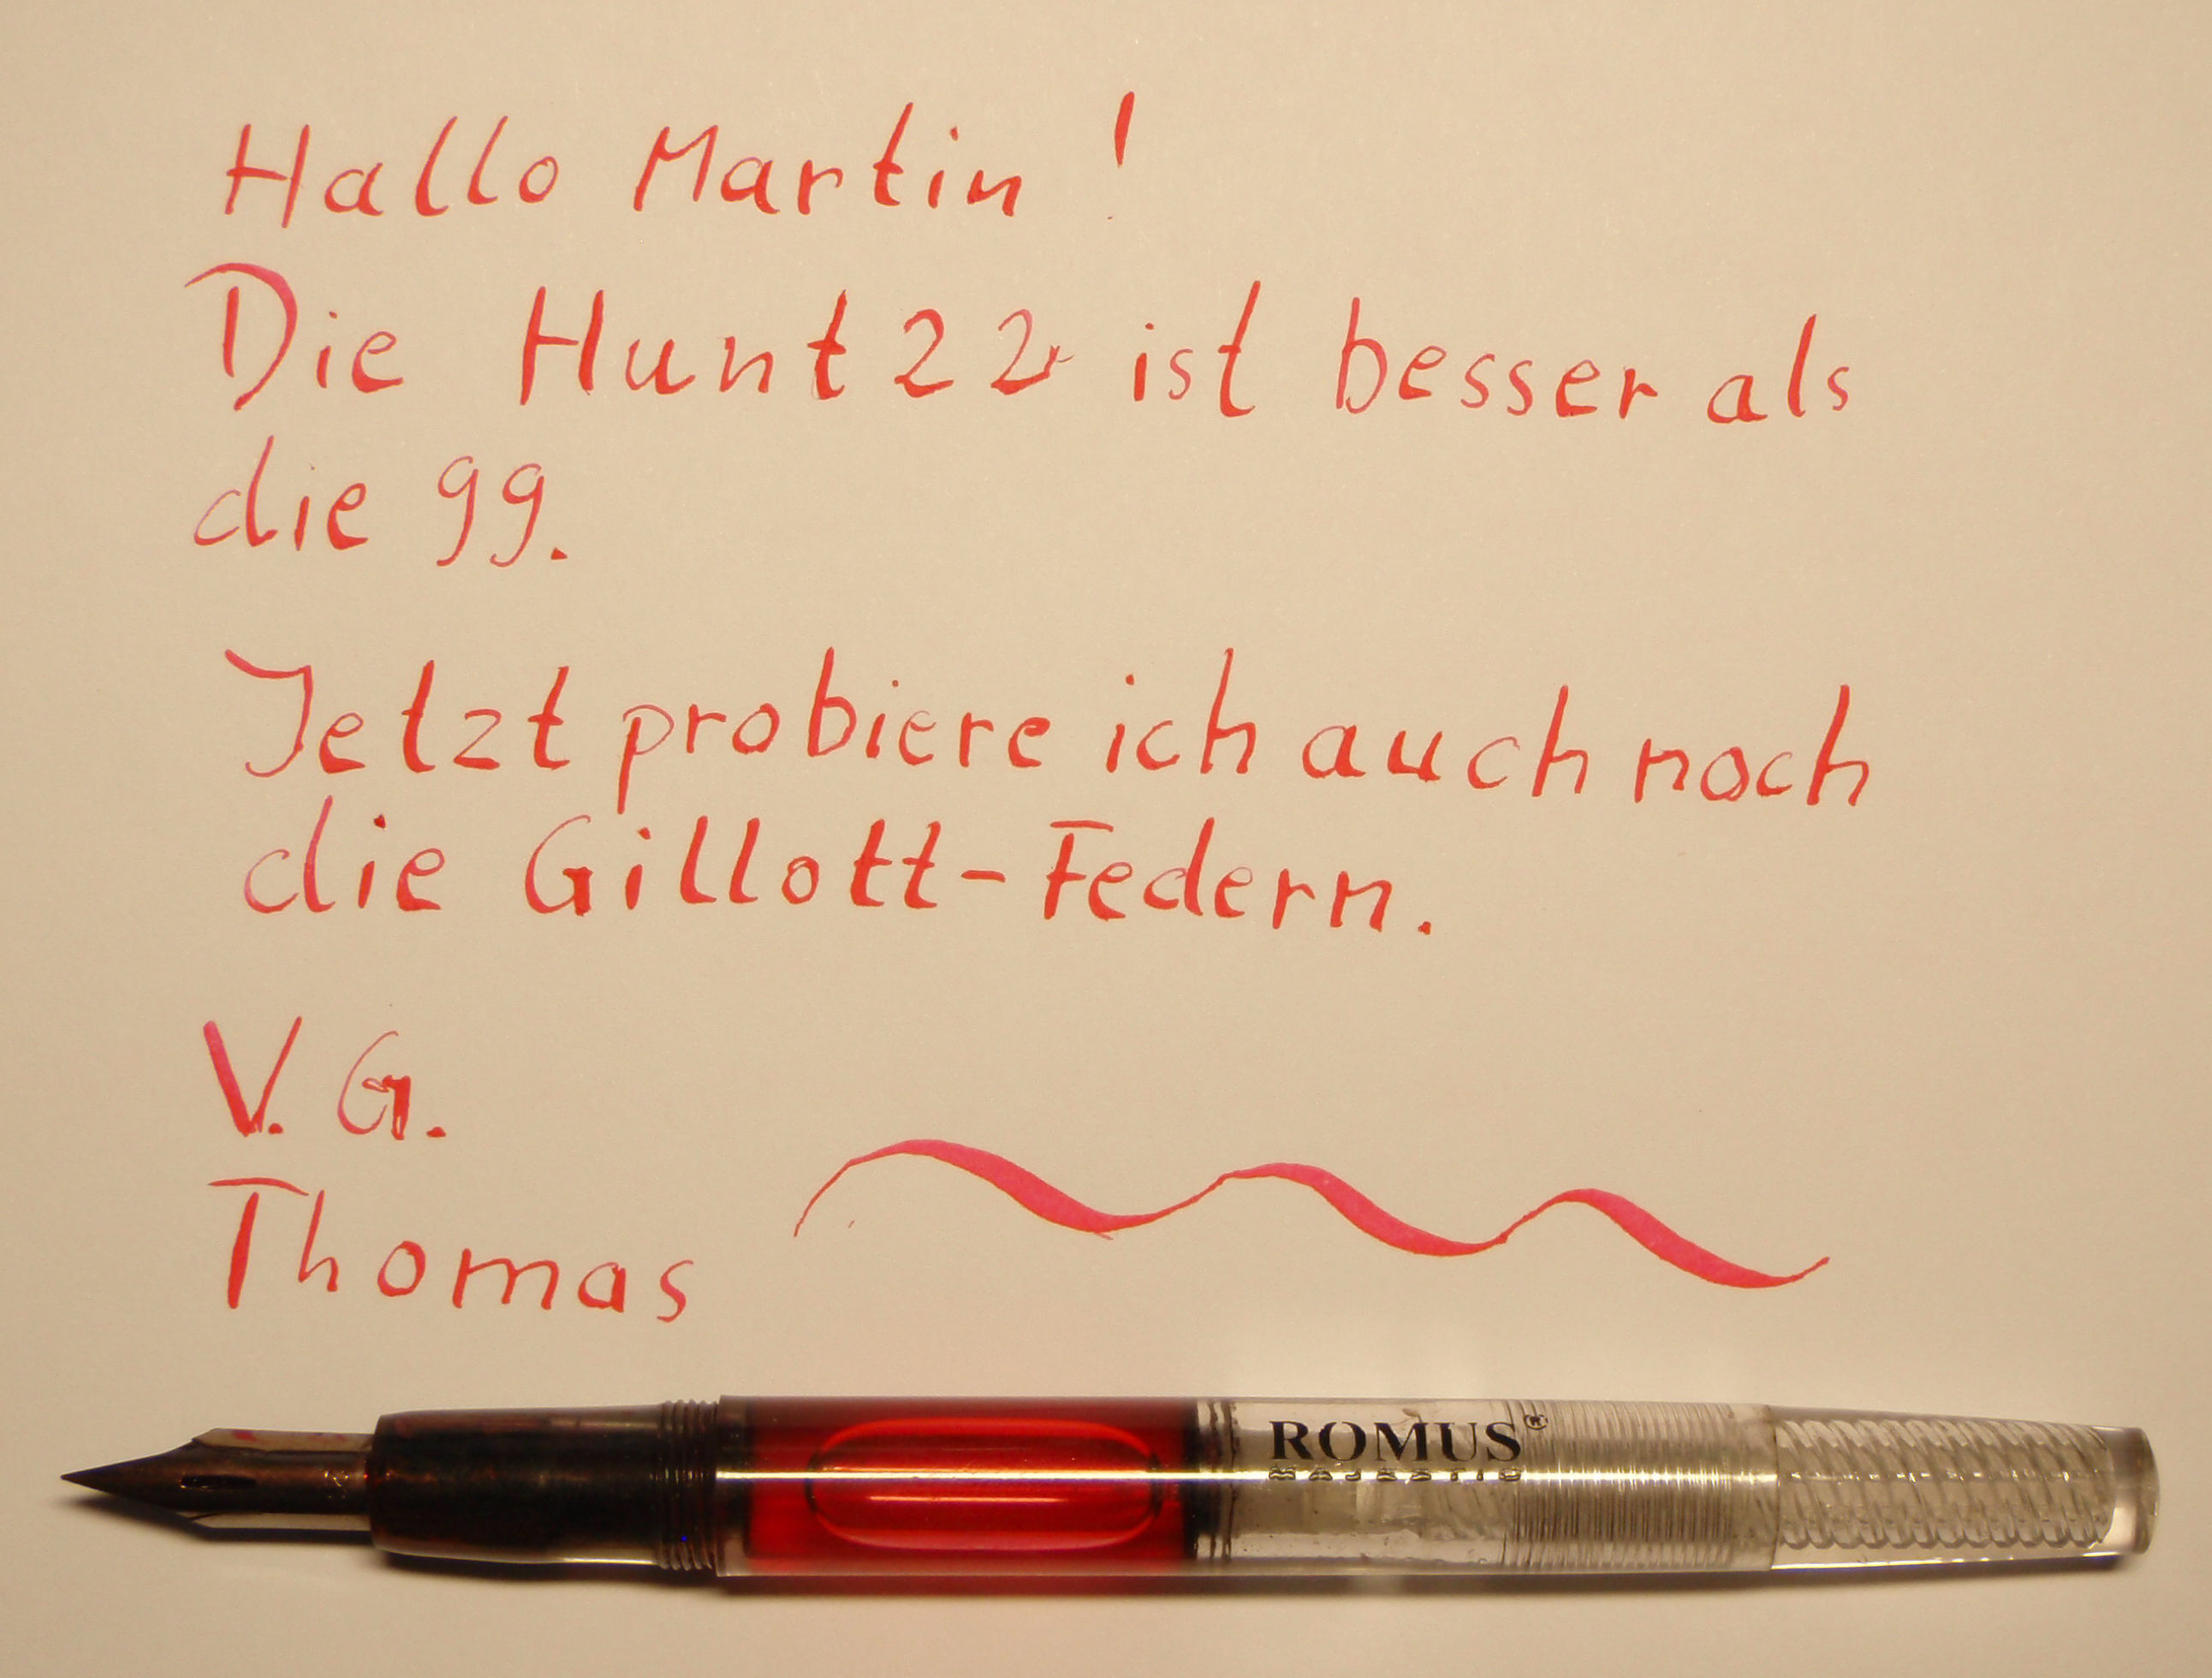 Hallo Martin!
Die Hunt 22 ist besser als
die 99.
Jetzt probiere ich auch noch
die Gillott-Federn.
V. G.
Thomas
ROMUS®
MAJESTIC